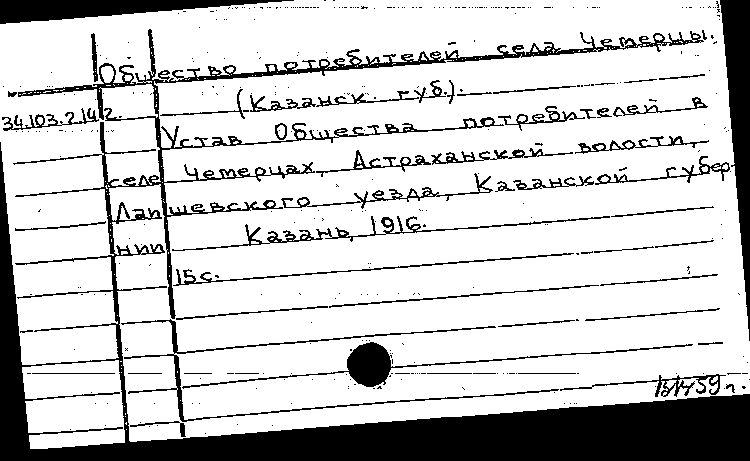 Общество потребителей села Чемерцы.
(Казанск. губ.).
34.103.2.142.
Устав Общества потребителей в
селе Чемерцах, Астраханской волости,
Лапшевского уезда, Казанской губер-
нии
Казань, 1916.
15 с.